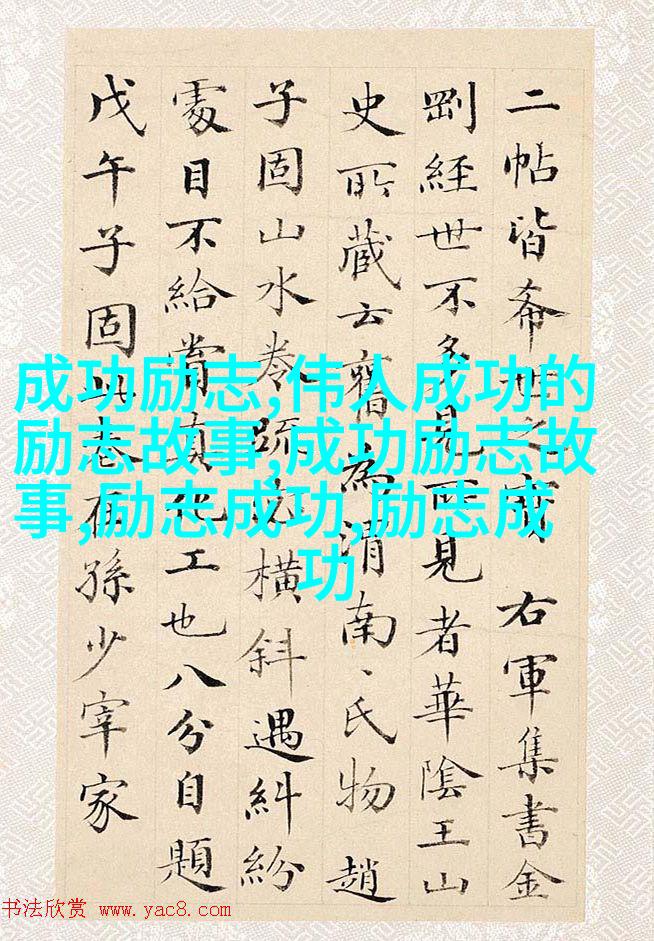 二帖皆希世之寶 右軍集書金
剛經世不多見所見者華陰王山
史所藏云舊為渭南、氏物趙
子固山水卷疏橫斜遇糾紛
處目不給當真化工也八分自題
戊午子固此卷在孫少宰家
成功励志,伟人成功的
励志故事,成功励志故
事,励志成功,励志成
功
书法欣赏 www.yac8.com